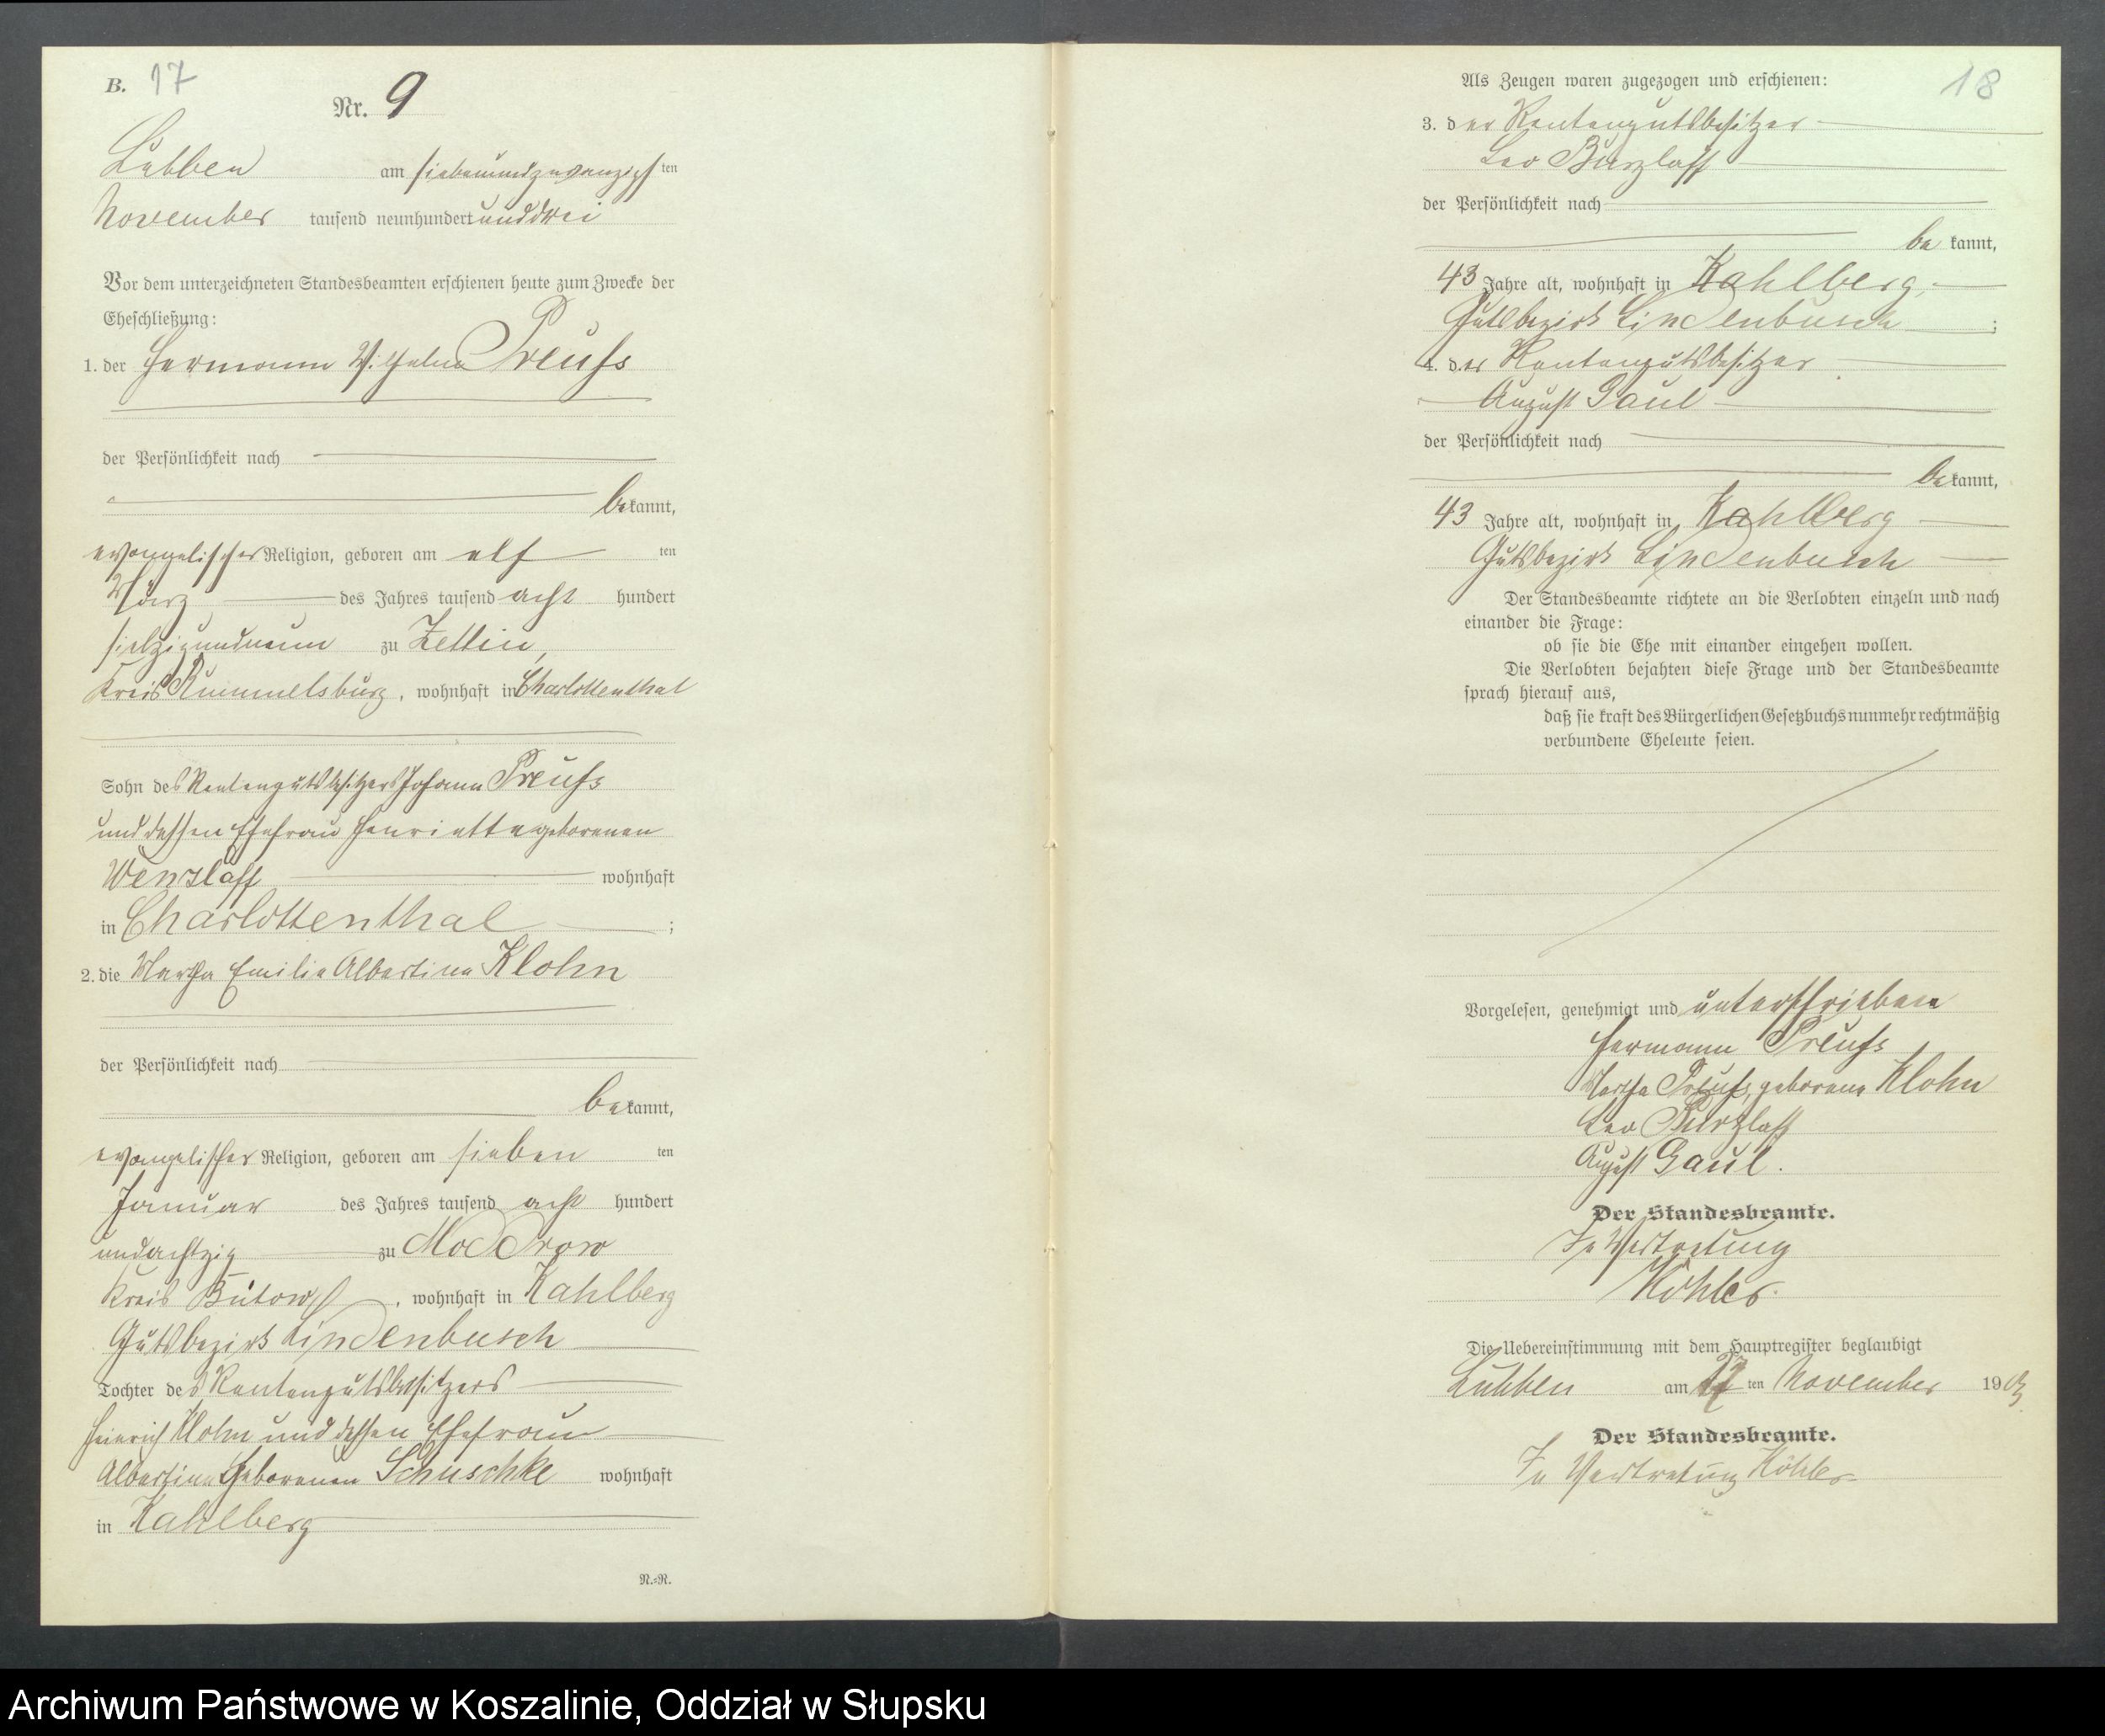 B. 17
Nr. 9
Lubben am siebenundzwanzigsten
November tausend neunhundert und drei
Vor dem unterzeichneten Standesbeamten erschienen heute zum Zwecke der
Eheschließung:
1. der Hermann Wilhelm Preuß
der Persönlichkeit nach
bekannt,
evangelischer Religion, geboren am elften
März des Jahres tausend acht hundert
siebzigundneun zu Zettin,
Kreis Rummelsburg, wohnhaft in Charlottenthal
Sohn des Rentengutsbesitzers Johann Preuß
und dessen Ehefrau Henriette geborenen
Wenzlaff wohnhaft
in Charlottenthal ;
2. die Martha Emilie Albertine Klohn
der Persönlichkeit nach
bekannt,
evangelischer Religion, geboren am siebenten
Januar des Jahres tausend acht hundert
undachtzig zu Moddrow
Kreis Bütow, wohnhaft in Kahlberg
Gutsbezirk Lindenbusch
Tochter des Rentengutsbesitzers
Heinrich Klohn und dessen Ehefrau
Albertine geborenen Schuschke wohnhaft
in Kahlberg
N.=R.
Als Zeugen waren zugezogen und erschienen: 18
3. der Rentengutsbesitzer
Leo Burzlaff
der Persönlichkeit nach
be kannt,
43 Jahre alt, wohnhaft in Kahlberg,
Gutsbezirk Lindenbusch ;
4. der Rentengutsbesitzer
August Gaul
der Persönlichkeit nach
bekannt,
43 Jahre alt, wohnhaft in Kahlberg
Gutsbezirk Lindenbusch
Der Standesbeamte richtete an die Verlobten einzeln und nach
einander die Frage:
ob sie die Ehe mit einander eingehen wollen.
Die Verlobten bejahten diese Frage und der Standesbeamte
sprach hierauf aus,
daß sie kraft des Bürgerlichen Gesetzbuchs nunmehr rechtmäßig
verbundene Eheleute seien.
Vorgelesen, genehmigt und unterschrieben
Hermann Preuß
Martha Preuß, geborene Klohn
Leo Burzlaff
August Gaul.
Der Standesbeamte.
In Vertretung
Köhler.
Die Uebereinstimmung mit dem Hauptregister beglaubigt
Lubben am 27 ten November 1903
Der Standesbeamte.
In Vertretung Köhler
Archiwum Państwowe w Koszalinie, Oddział w Słupsku